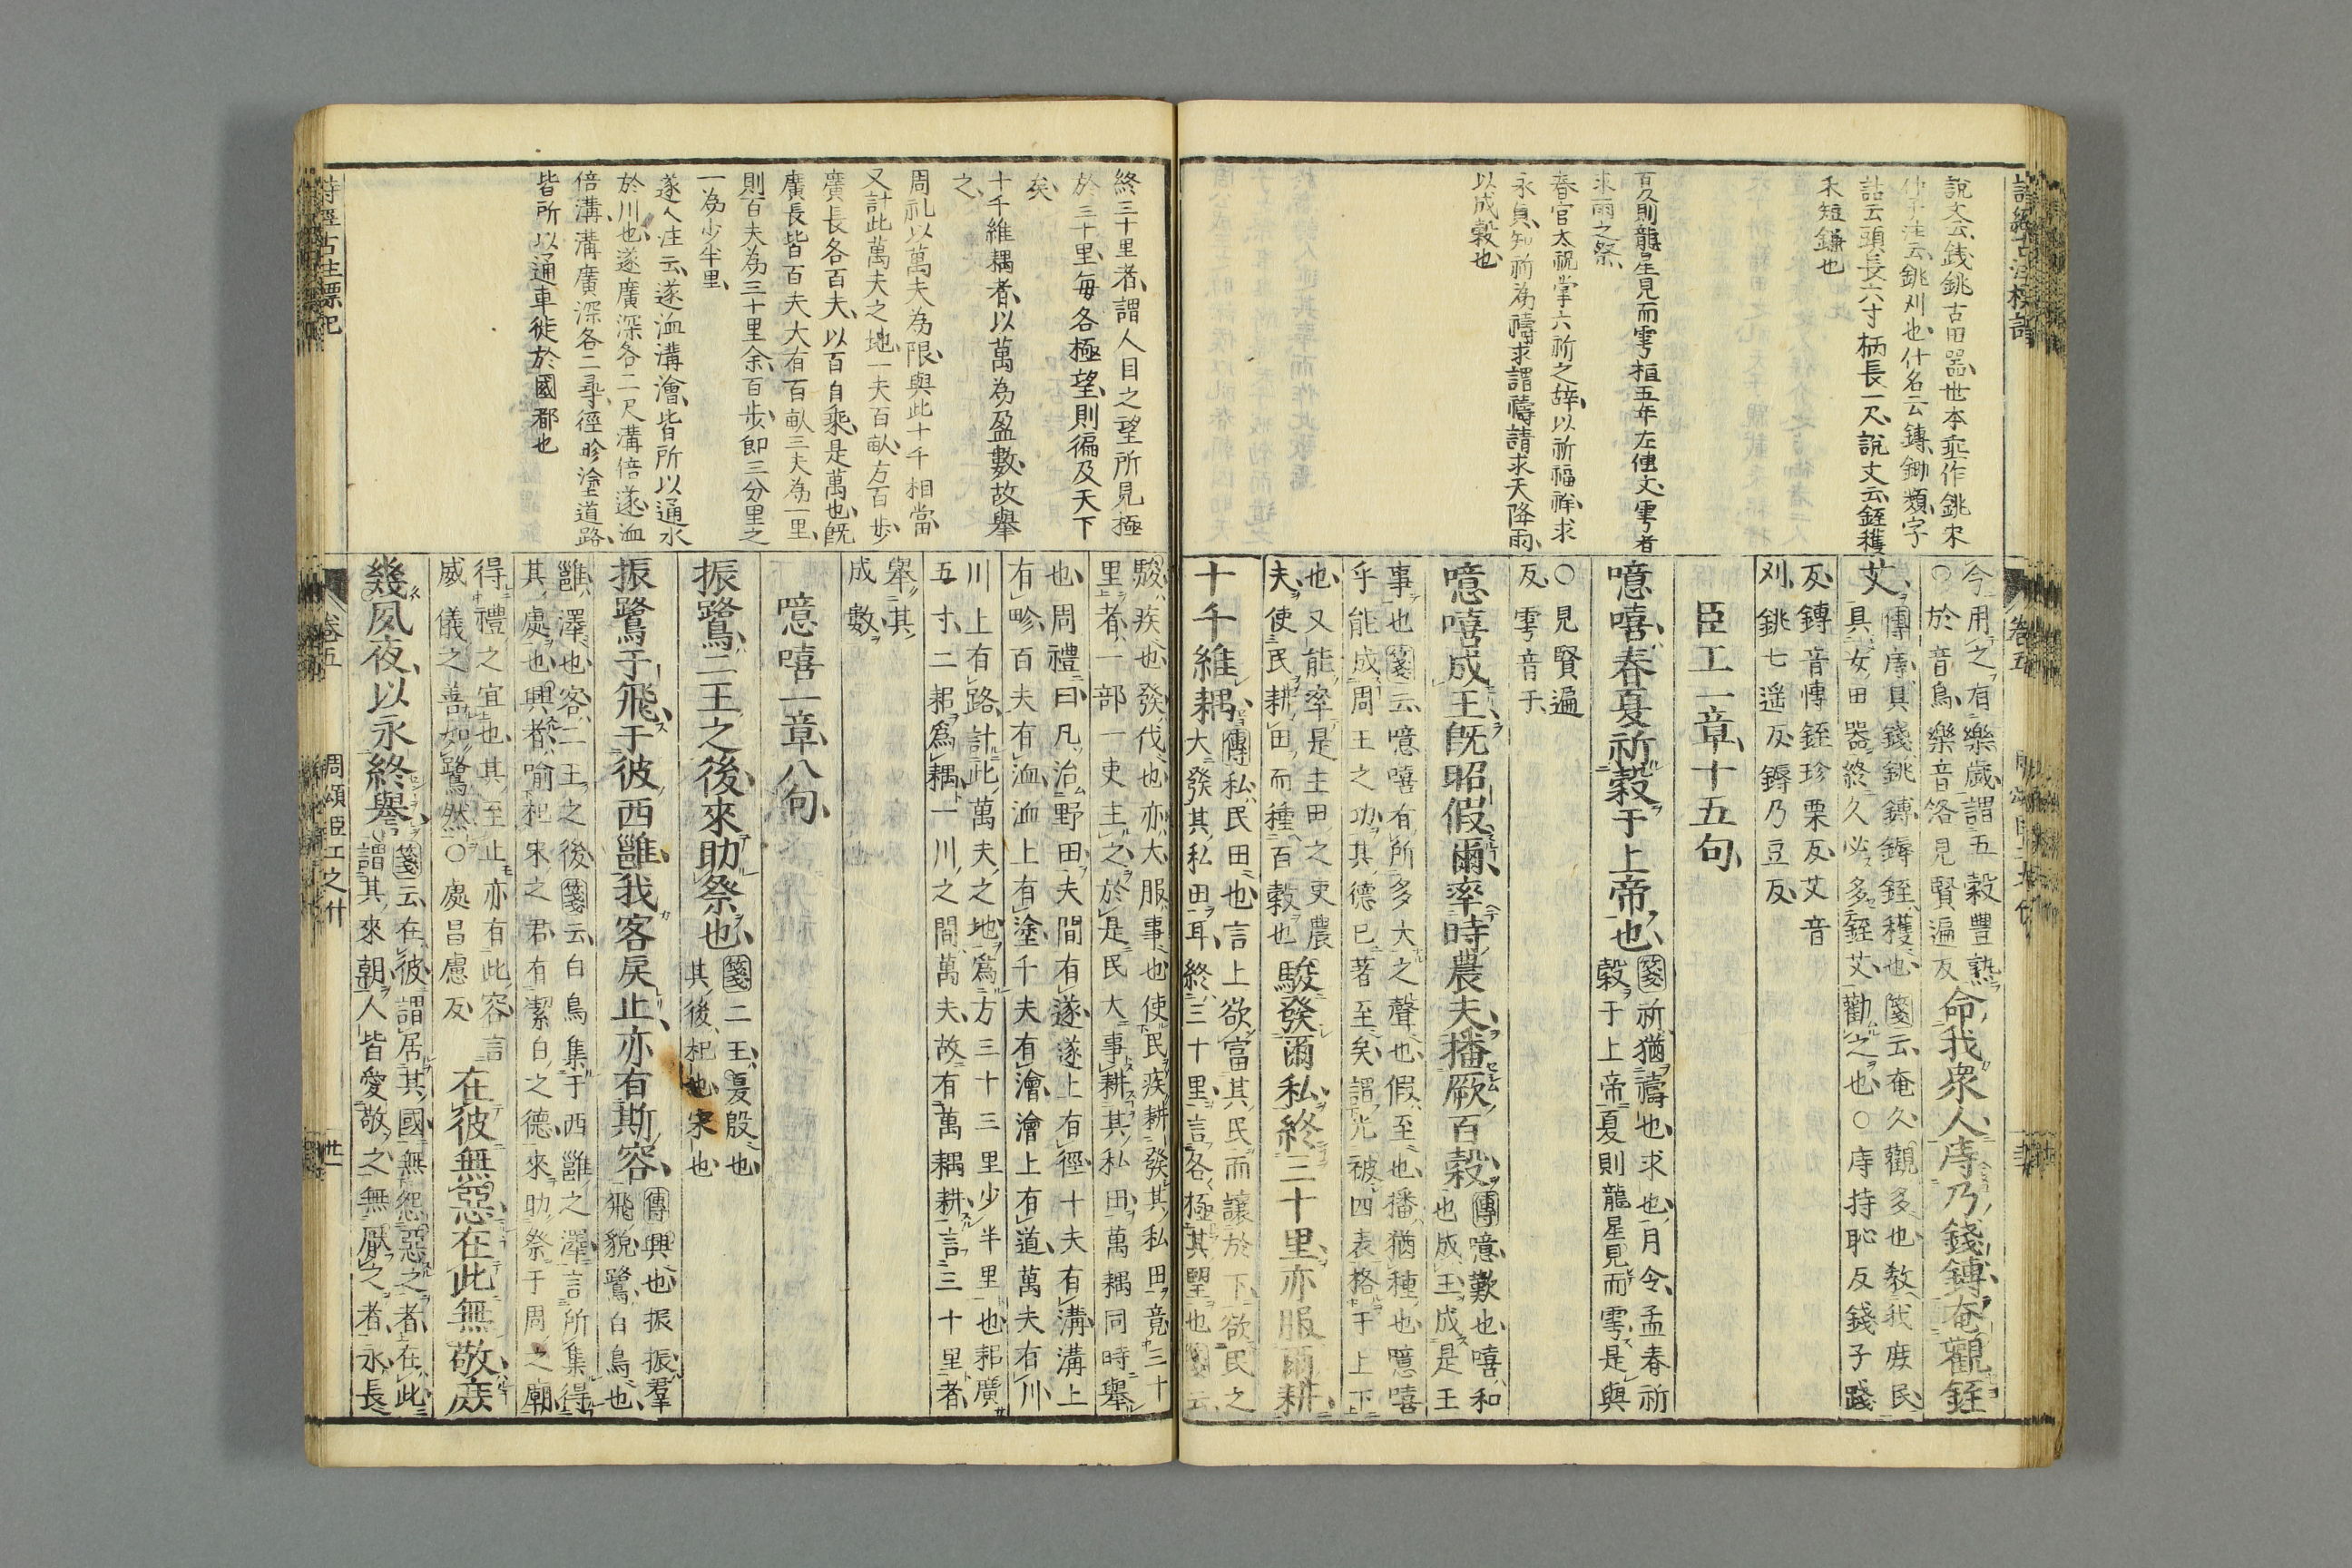 說文云銭銚古田器世本垂作銚宋
仲子注云銚刈也什名云鎛鋤類字
詁云頭長六寸柄長一尺說文云銍穫
禾短鎌也
百久則龍星見而雩桓五年左傳文雩者
求雨之祭
春官太祝掌六祈之辞以祈福祥求
永貞知祈為禱求謂禱請求天降雨
以成穀也
今用之有樂歲謂五穀豊熟
○於音烏樂音洛見賢遍反
命我衆人庤乃錢鎛奄觀銍
艾
傳庤具錢銚鎛鎒銍穫也箋云奄久觀多也敎我庶民
具女田器終久必多銍艾勸之也○庤持恥反錢子踐
反鎛音博銍珍栗反艾音
刈銚七遥反鎒乃豆反
臣工一章十五句
噫嘻春夏祈穀于上帝也
箋祈猶禱也求也月令孟春祈
穀于上帝夏則龍星見而雩是與
○見賢遍
反雩音于
噫嘻成王旣昭假爾率時農夫播厥百穀
傳噫歎也嘻和
也成王成是王
事也箋云噫嘻有所多大之聲也假至也播猶種也噫嘻
乎能成周王之功其德已著至矣謂光被四表格于上下
也又能率是主田之吏農
夫使民耕田而種百穀也
駿發爾私終三十里亦服爾耕
十千維耦
傳私民田也言上欲富其民而讓於下欲民之
大發其私田耳終三十里言各極其望也箋云
駿疾也發伐也亦大服事也使民疾耕發其私田竟三十
里者一部一吏主之於是民大事耕其私田萬耦同時舉
也周禮曰凡治野田夫間有遂遂上有徑十夫有溝溝上
有畛百夫有洫洫上有塗千夫有澮澮上有道萬夫有川
川上有路計此萬夫之地為方三十三里少半里也耜廣
五寸二耜為耦一川之間萬夫故有萬耦耕言三十里者
舉其
成數
噫嘻一章八句
振鷺二王之後來助祭也
箋二王夏殷也
其後杞也宋也
振鷺于飛于彼西雝我客戾止亦有斯容
傳興也振振羣
飛貌鷺白鳥也
雝澤也客二王之後箋云白鳥集于西雝之澤言所集得
其處也興者喻杞宋之君有潔白之德來助祭于周之廟
得禮之宜也其至止亦有此容言
威儀之善如鷺然○處昌慮反
在彼無惡在此無斁庶
幾夙夜以永終譽
箋云在彼謂居其國無怨惡之者在此
謂其來朝人皆愛敬之無厭之者永長
終三十里者謂人目之望所見極
於三十里每各極望則徧及天下
矣
十千維耦者以萬為盈數故舉
之
周礼以萬夫為限與此十千相當
又計此萬夫之地一夫百畝方百歩
廣長各百夫以百自乘是萬也旣
廣長皆百夫夫有百畝三夫為一里
則百夫為三十里余百歩即三分里之
一為少半里
遂人注云遂洫溝澮皆所以通水
於川也遂廣深各二尺溝倍遂洫
倍溝溝廣深各二尋徑畛塗道路
皆所以通車徒於國都也
詩經古注標記
卷五
周頌臣工之什
廿一